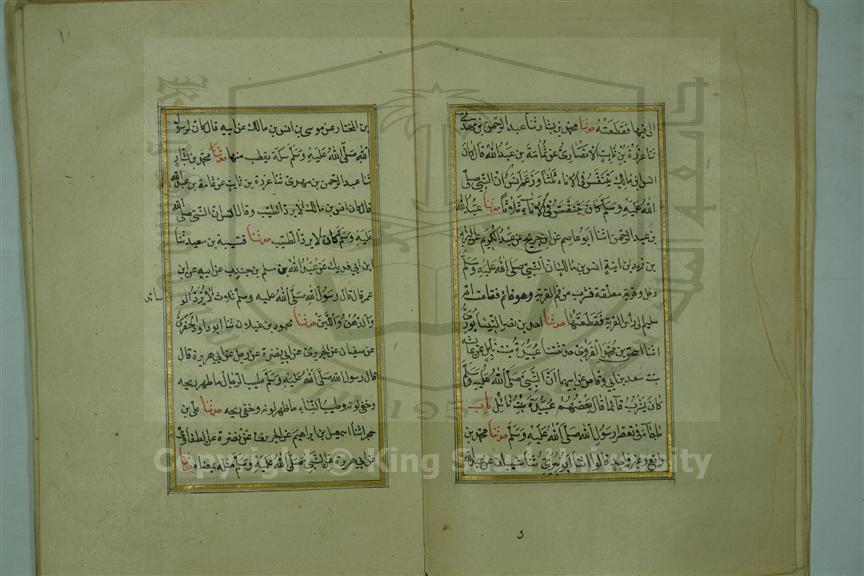 الى فمها فقطعته حدثنا محمد بن بشار ثنا عبد الرحمن بن مهدى
ثنا عزرة بن ثابت الانصارى عن ثمامة بن عبد الله قال كان
انس بن مالك يتنفس فى الاناء ثلثا وزعم انس ان النبى صلى
الله عليه وسلم كان يتنفس فى الاناء ثلاثا حدثنا عبد الله
بن عبد الرحمن اثنا ابو عاصم عن ابن جريج عن عبد الكريم عن البراء
بن زيد بن ابنة انس بن مالك ان النبى صلى الله عليه وسلم
دخل وقربة معلقة فشرب من فم القربة وهو قائم فقامت ام
سليم الى راس القربة فقطعتها حدثنا احمد بن نصر النيسابورى
اثنا اسحق بن محمد الفروى حدثتنا عبيدة بنت نابل عن عائشة
بنت سعد بن ابى وقاص عن ابيها ان النبى صلى الله عليه وسلم
كان يشرب قائما قال بعضهم عبيدة بنت نابل باب
ماجاء فى تعطر رسول الله صلى الله عليه وسلم حدثنا محمد بن
رافع وغير واحد قالوا اثنا ابو ثنا شيبان عن عبد الله
بن المختار عن موسى بن انس بن مالك عن ابيه قال كان لرسول
الله صلى الله عليه وسلم سكة يتطيب منها حدثنا محمد بن بشار
ثنا عبد الرحمن بن مهدى ثنا عزرة بن ثابت عن ثمامة بن عبد الله
قال كان انس بن مالك لا يرد الطيب وقال انس ان النبى صلى الله
عليه وسلم كان لا يرد الطيب حدثنا قتيبة بن سعيد ثنا
ابن ابى فديك عن عبد الله بن مسلم بن جندب عن ابيه عن ابن
عمر قال قال رسول الله صلى الله عليه وسلم ثلاث لا ترد الو
سائد
والدهن واللبن حدثنا محمود بن غيلان ثنا ابو داود الحفرى
عن سفيان عن الجريرى عن ابى نضرة عن رجل عن ابى هريرة قال
قال رسول الله صلى الله عليه وسلم طيب الرجال ما ظهر ريحه
وخفى لونه وطيب النساء ما ظهر لونه وخفى ريحه حدثنا على بن
حجر اثنا اسمعيل بن ابراهيم عن الجريرى عن نضرة عن الطفاوى
عن ابى هريرة عن النبى صلى الله عليه وسلم مثله بمعناه حدثنا
Copyright © King Saud University
1957